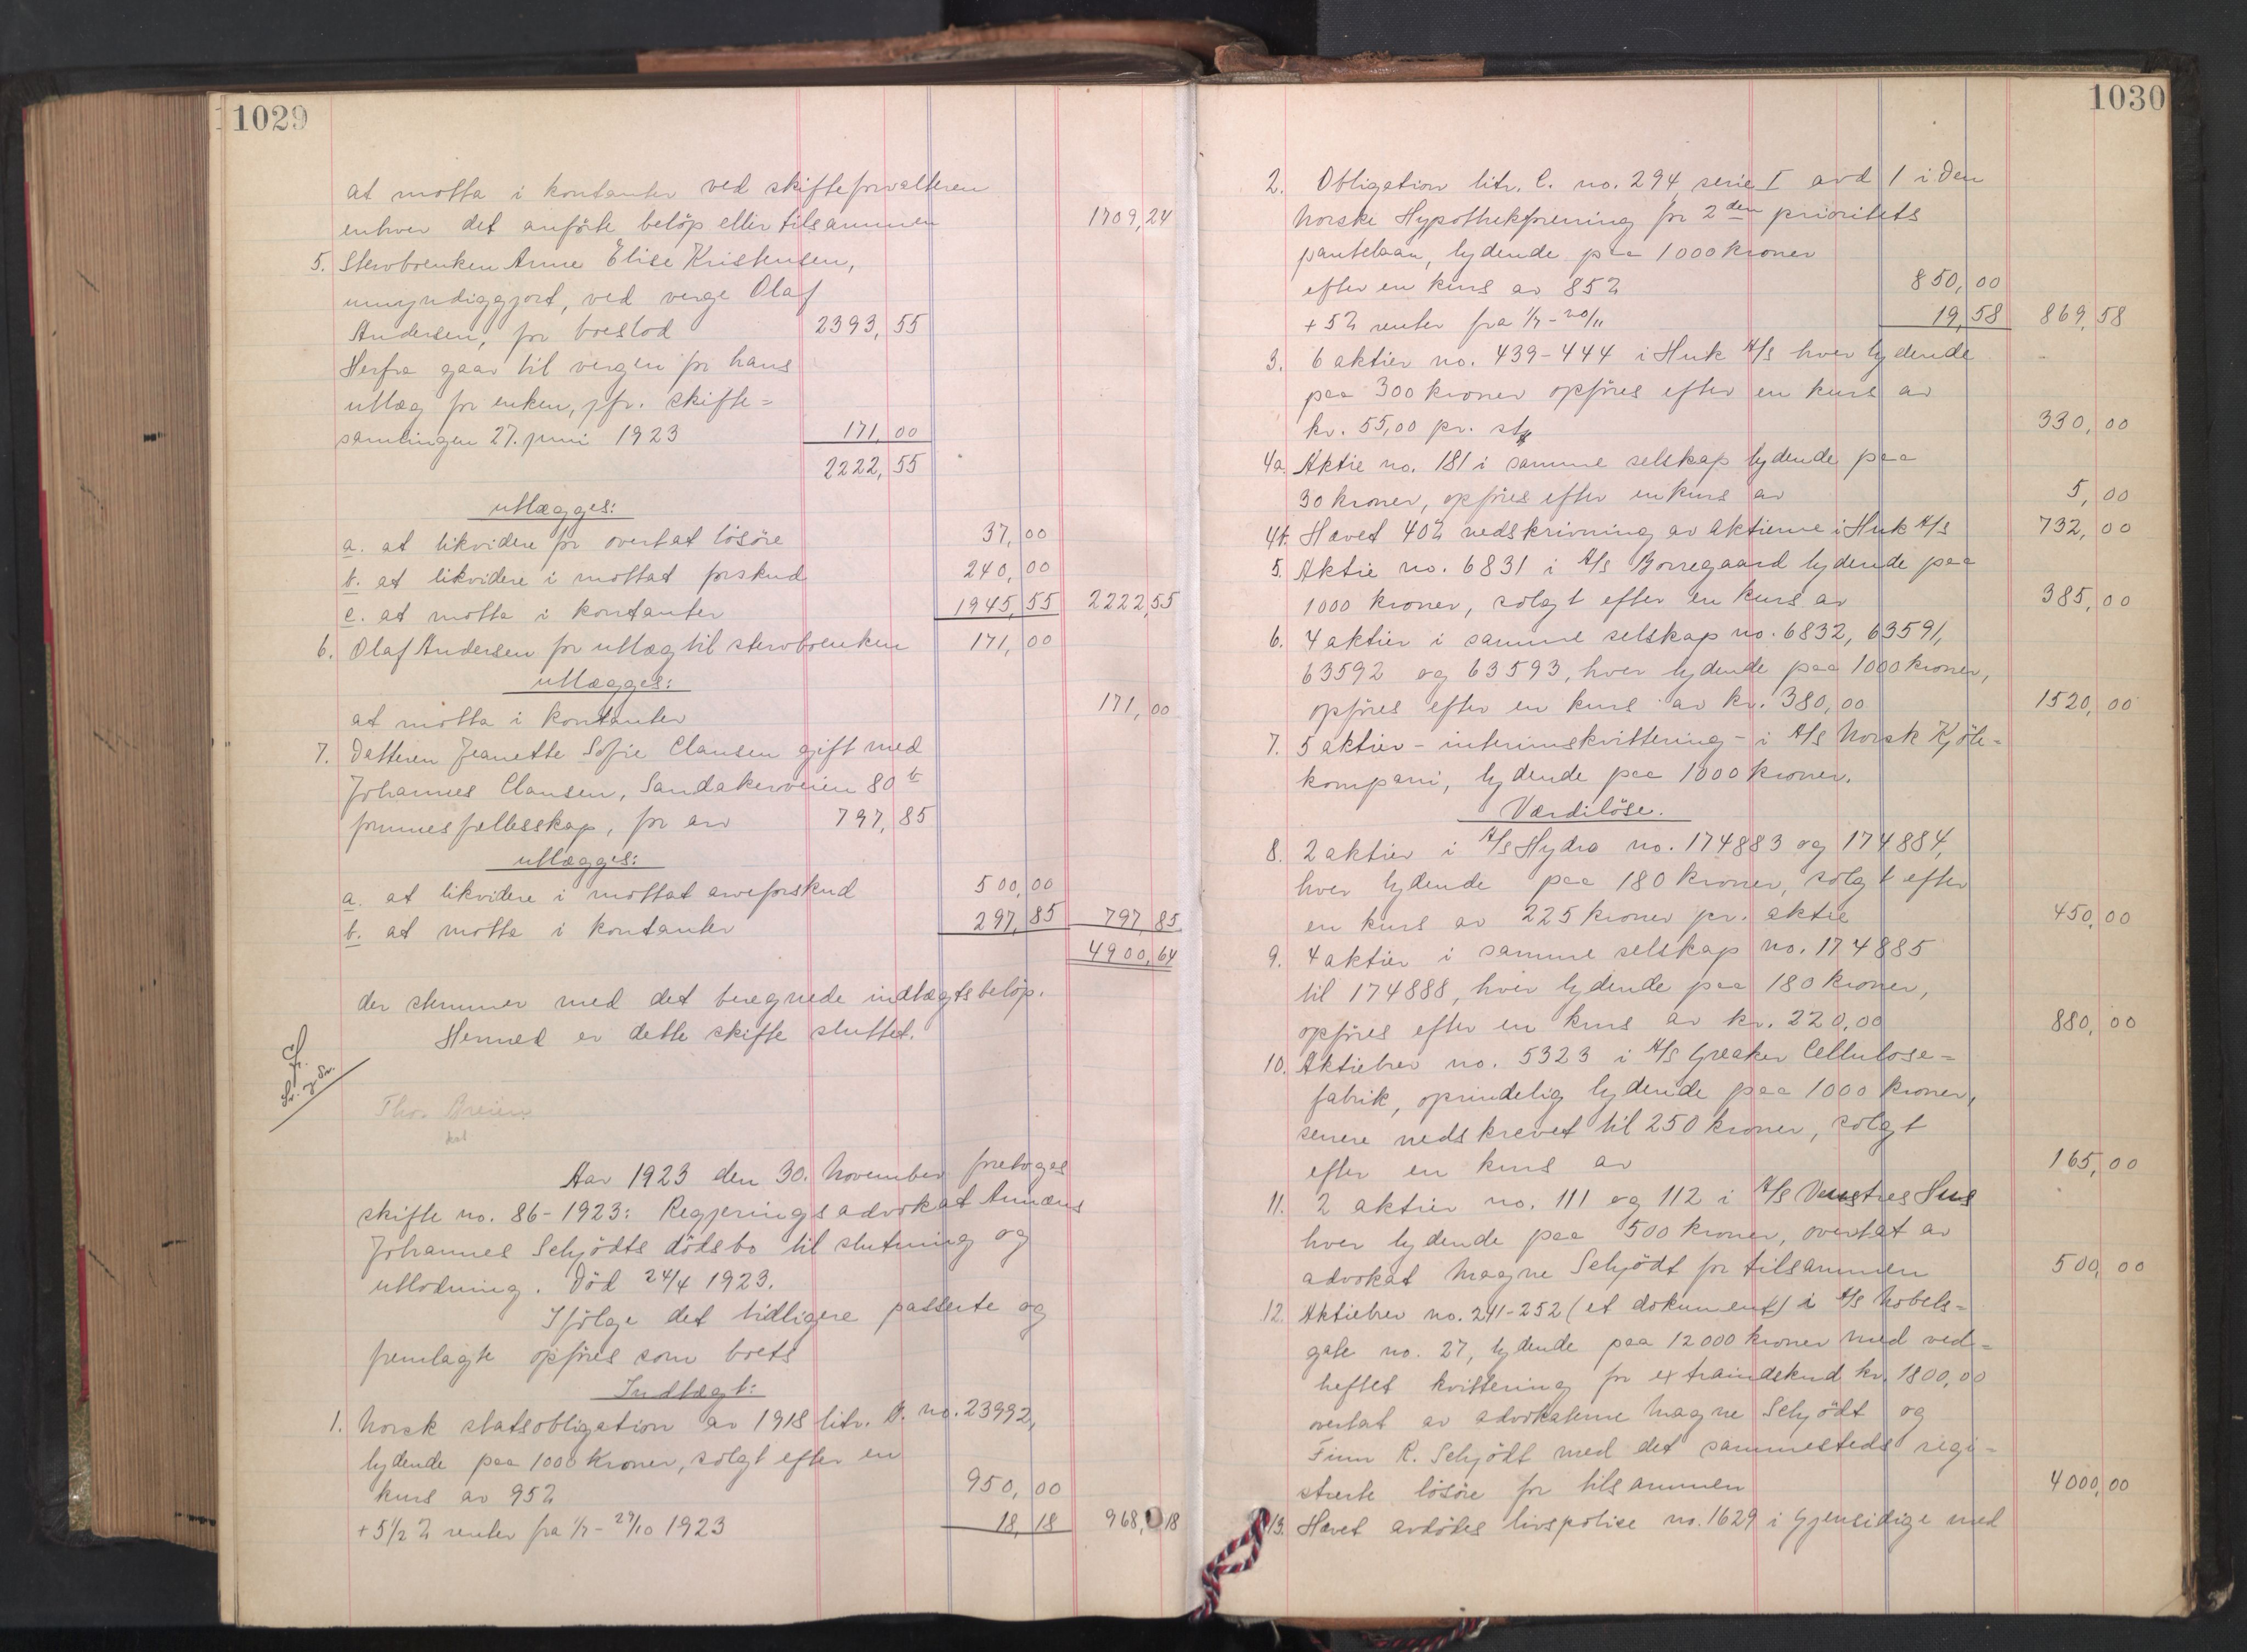 1029
at motta i kontanter ved skifteforvalteren
enhver det anførte beløp eller tilsammen 1709,24
5. Stervboenken Anne Elise Kristensen,
umyndiggjort, ved verge Olaf
Andersen, for boeslod 2393,55
Herfra gaar til vergen for hans
utlæg for enken, jfr. skifte=
samlingen 27. juni 1923 171,00
2222,55
utlægges:
a. at likvidere for overtat løsøre 37,00
b. at likvidere i mottat forskud 240,00
c. at motta i kontanter 1945,55 2222,55
6. Olaf Andersen for utlæg til stervboenken 171,00
utlægges:
at motta i kontanter 171,00
7. Datteren Jeanette Sofie Clausen gift med
Johannes Clausen, Sandakerveien 80 b
formuesfællesskap, for arv 797,85
utlægges:
a. at likvidere i mottat arveforskud 500,00
b. at motta i kontanter 297,85 797,85
4900,64
der stemmer med det beregnede indtægtsbeløp.
Hermed er dette skifte sluttet.
Thor Breien
Aar 1923 den 30. November foretoges
skifte no. 86-1923: Regjeringsadvokat Annæus
Johannes Schjødts dødsbo til slutning og
utlodning. Død 24/4 1923.
Ifølge det tidligere passerte og
fremlagte opføres som boets
Indtægt:
1. Norsk statsobligation av 1918 litr. D. no. 23992,
lydende paa 1000 kroner, solgt efter en
kurs av 95% 950,00
+ 5½ % renter fra 1/7 - 29/10 1923 18,18 968,18
1030
2. Obligation litr. C. no. 294 serie I avd 1 i Den
Norske Hypothekforening for 2den prioritets
pantelaan, lydende paa 1000 kroner
efter en kurs av 85% 850,00
+ 5% renter fra 1/7 - 20/11 19,58 869,58
3. 6 aktier no. 439-444 i Huk A/S hver lydende
paa 300 kroner opføres efter en kurs av
kr. 55,00 pr. stk 330,00
4a. Aktie no. 181 i samme selskap lydende paa
30 kroner, opføres efter en kurs av 5,00
4b. Hævet 40% nedskrivning av aktierne i Huk A/S 732,00
5. Aktie no. 6831 i A/S Borregaard lydende paa
1000 kroner, solgt efter en kurs av 385,00
6. 4 aktier i samme selskap no. 6832, 63591,
63592 og 63593, hver lydende paa 1000 kroner,
opføres efter en kurs av kr. 380,00 1520,00
7. 5 aktier - interimskvittering - i A/S Norsk Kjøle=
kompani, lydende paa 1000 kroner.
Værdiløse.
8. 2 aktier i A/S Hydro no. 174883 og 174884,
hver lydende paa 180 kroner, solgt efter
en kurs av 225 kroner pr. aktie 450,00
9. 4 aktier i samme selskap no. 174885
til 174888, hver lydende paa 180 kroner,
opføres efter en kurs av kr. 220,00 880,00
10. Aktiebrev no. 5323 i A/S Greaker Cellulose=
fabrik, oprindelig lydende paa 1000 kroner,
senere nedskrevet til 250 kroner, solgt
efter en kurs av 165,00
11. 2 aktier no. 111 og 112 i A/S Venstres Hus
hver lydende paa 500 kroner, overtat av
advokat Magne Schjødt for tilsammen 500,00
12. Aktiebrev no. 241-252 (et dokument) i A/S Nobels=
gate no. 27, lydende paa 12000 kroner med ved=
heftet kvittering for extraindskud kr. 1800,00
overtat av advokaterne Magne Schjødt og
Finn R. Schjødt med det sammesteds regi=
strerte løsøre for tilsammen 4000,00
13. Hævet avdødes livspolise no. 1629 i Gjensidige med